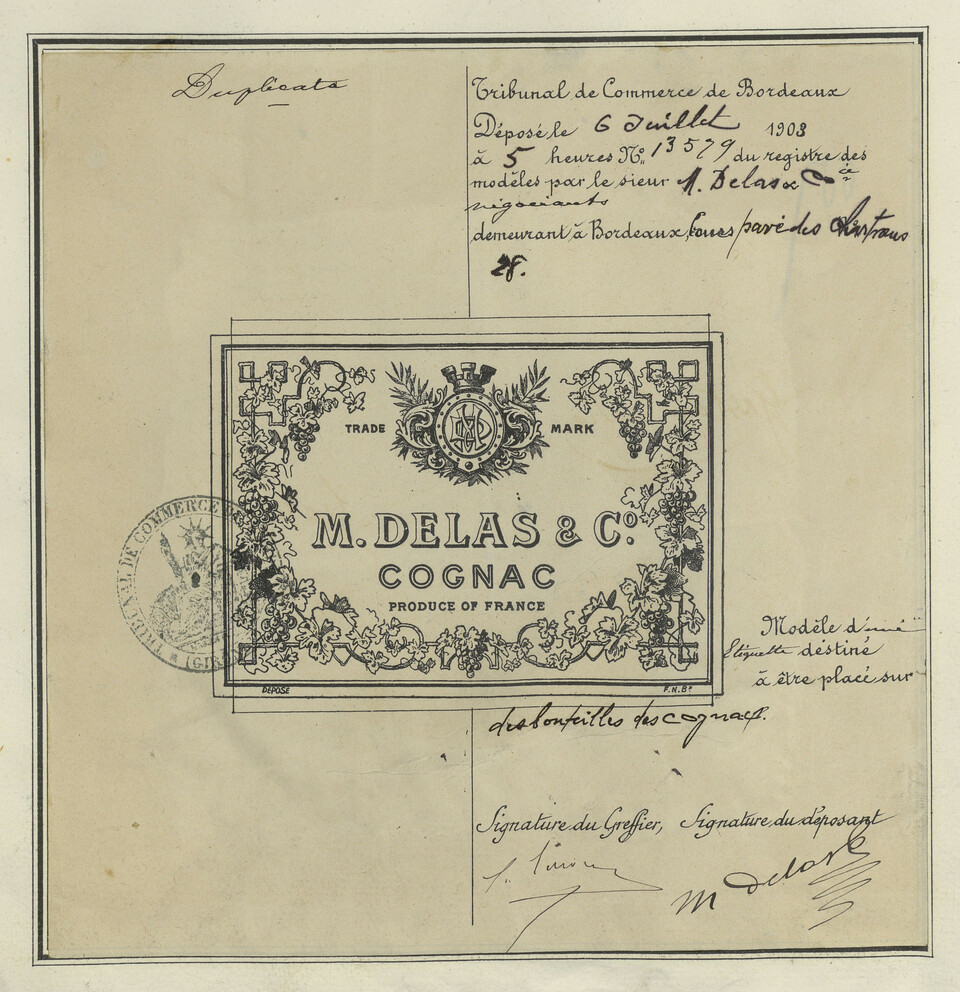 Duplicata
Tribunal de Commerce de Bordeaux
Déposé le 6 Juillet 1903
à 5 heures No. 13579 du registre des
modèles par le sieur M. Delas & Cie
négociants
demeurant à Bordeaux, pavé des Chartrons
28.
TRADE MARK
M. DELAS & Co.
COGNAC
PRODUCE OF FRANCE
DÉPOSÉ F.N.Bx
TRIBUNAL DE COMMERCE DE
(GIR
Modèle d'une
Etiquette destiné
à être placé sur
des bouteilles des cognacs.
Signature du Greffier, Signature du déposant
M Delas